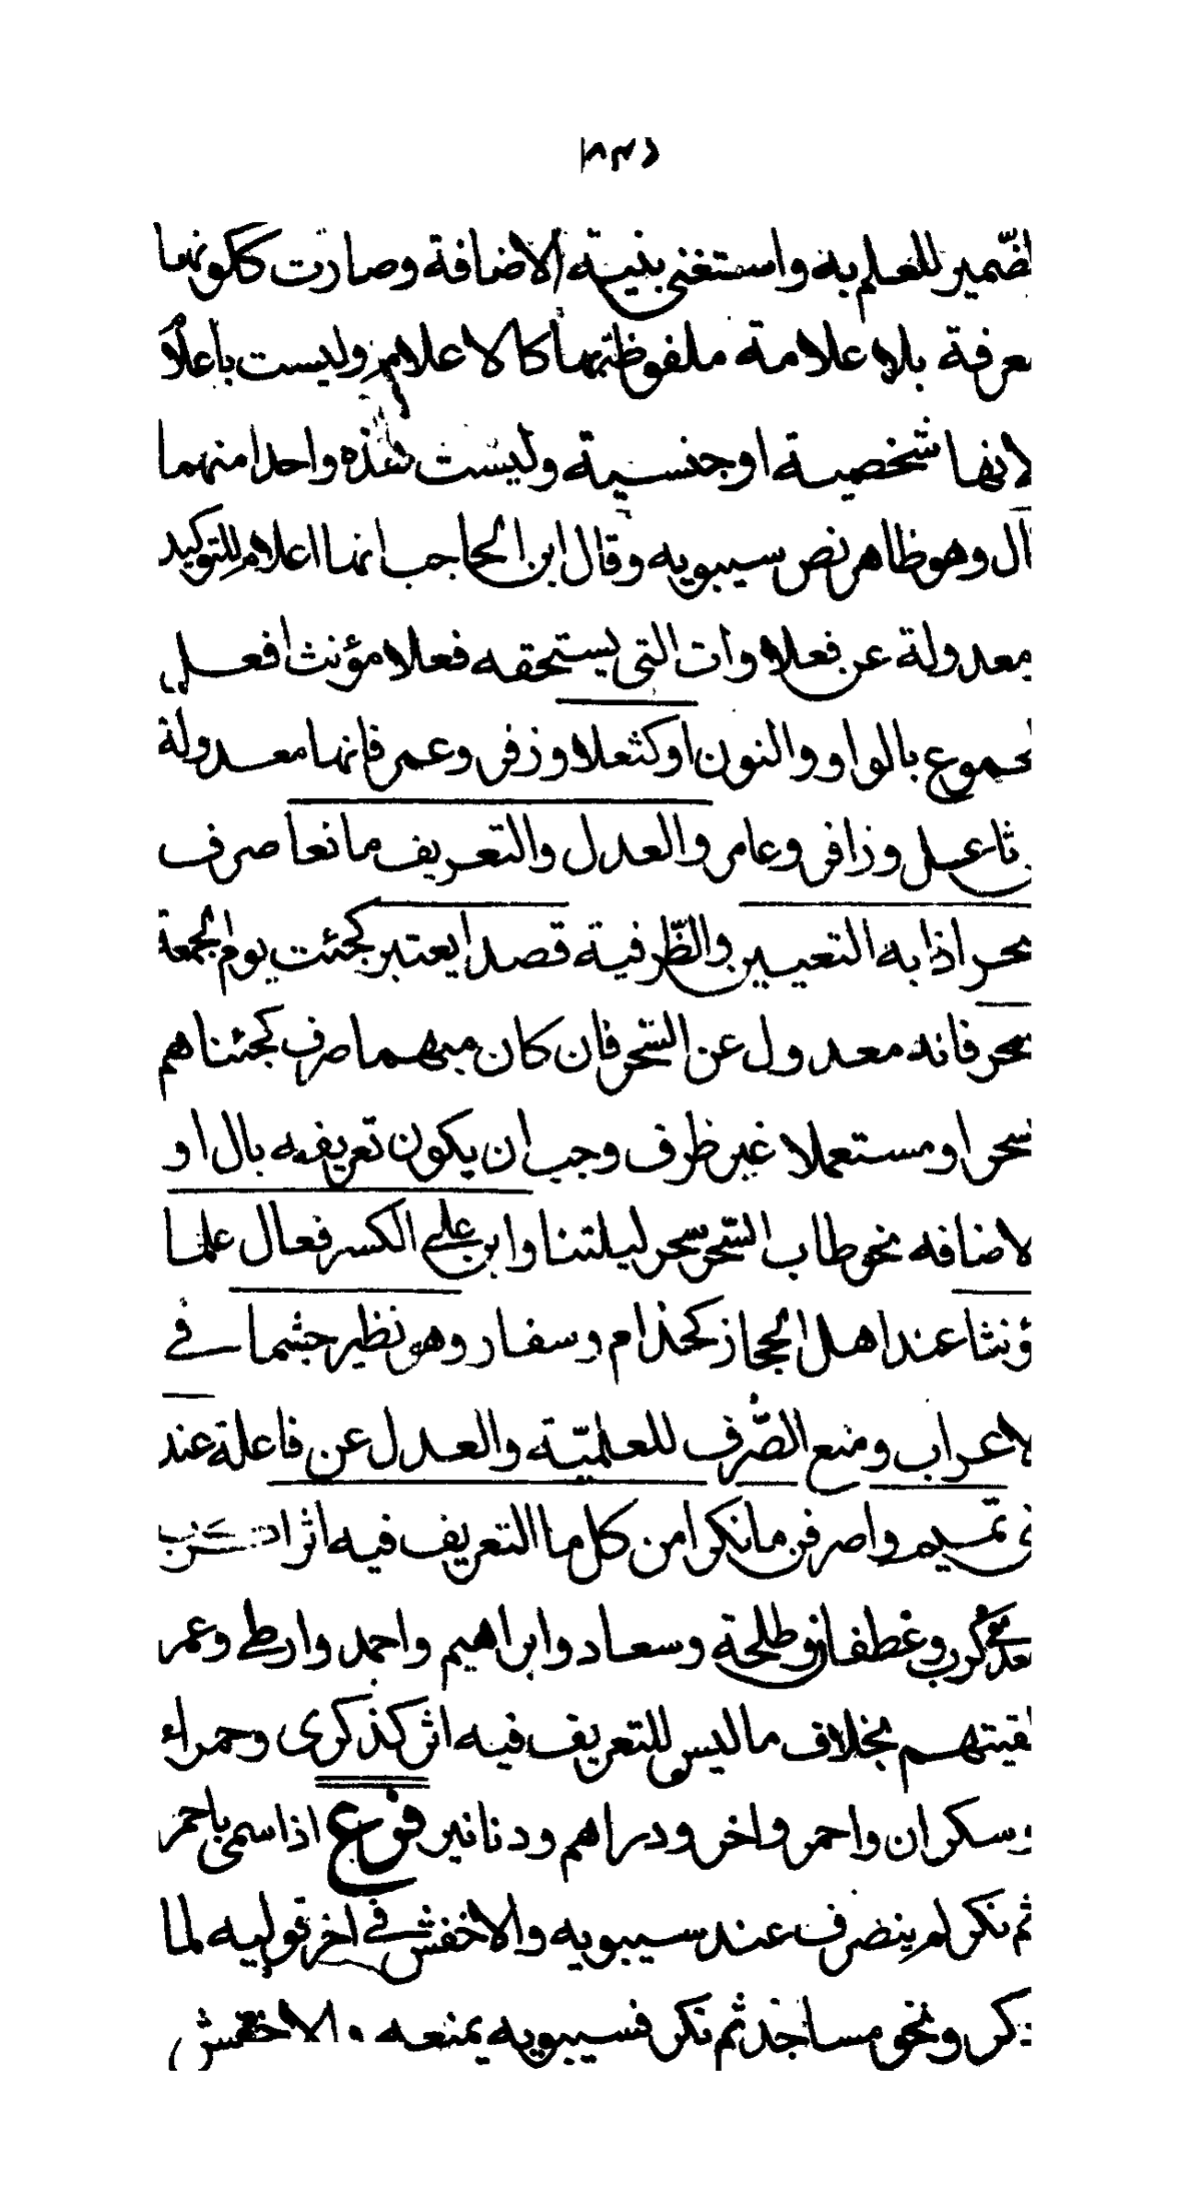 لضّمير للعلم به واستغنى بنية الاضافة وصارت ككونها
معرفة بلا علامة ملفوظ بها كالاعلام وليست باعلام
لانها شخصية او جنسية وليست هذه واحدا منهما
قال وهو ظاهر نص سيبويه وقال ابن الحاجب انها اعلام للتوكيد
معدولة عن فعلاوات التى يستحقه فعلا مؤنث افعل
لمجموع بالواو والنون او كثعلا وزفر وعمر فانها معدولة
عن ثاعل وزافر وعامر والعدل والتعريف مانعا صرف
سحر اذا به التعيين والظّرفية قصدا يعتبر كجئت يوم الجمعة
سحر فانه معدول عن السّحر فان كان مبهما صرف كجئناهم
سحر او مستعملا غير ظرف وجب ان يكون تعريفه بال او
لاضافه نحو طاب السّحر سحر ليلتنا وابن على الكسر فعال علما
مؤنثا عند اهل الحجاز كحذام وسفار وهو نظير جشما فى
لاعراب ومنع الصّرف للعلميّة والعدل عن فاعلة عند
بنى تمّيم واصرفن مانكرا من كل ما التعريف فيه اثرا
معد يكرب وغطفان وطلحة وسعاد وابراهيم واحمد وارطى وعمر
لقيتهم بخلاف ما ليس للتعريف فيه اثر كذكرى وحمراء
وسكران واحمر واخر ودراهم ودنانير فرع اذا سمى باحمر
ثم نكر لم ينصرف عند سيبويه والاخفش فى اخر قوليه لما
ذكر ونحو مساجد ثم نكر فسيبويه يمنعه والاخفش